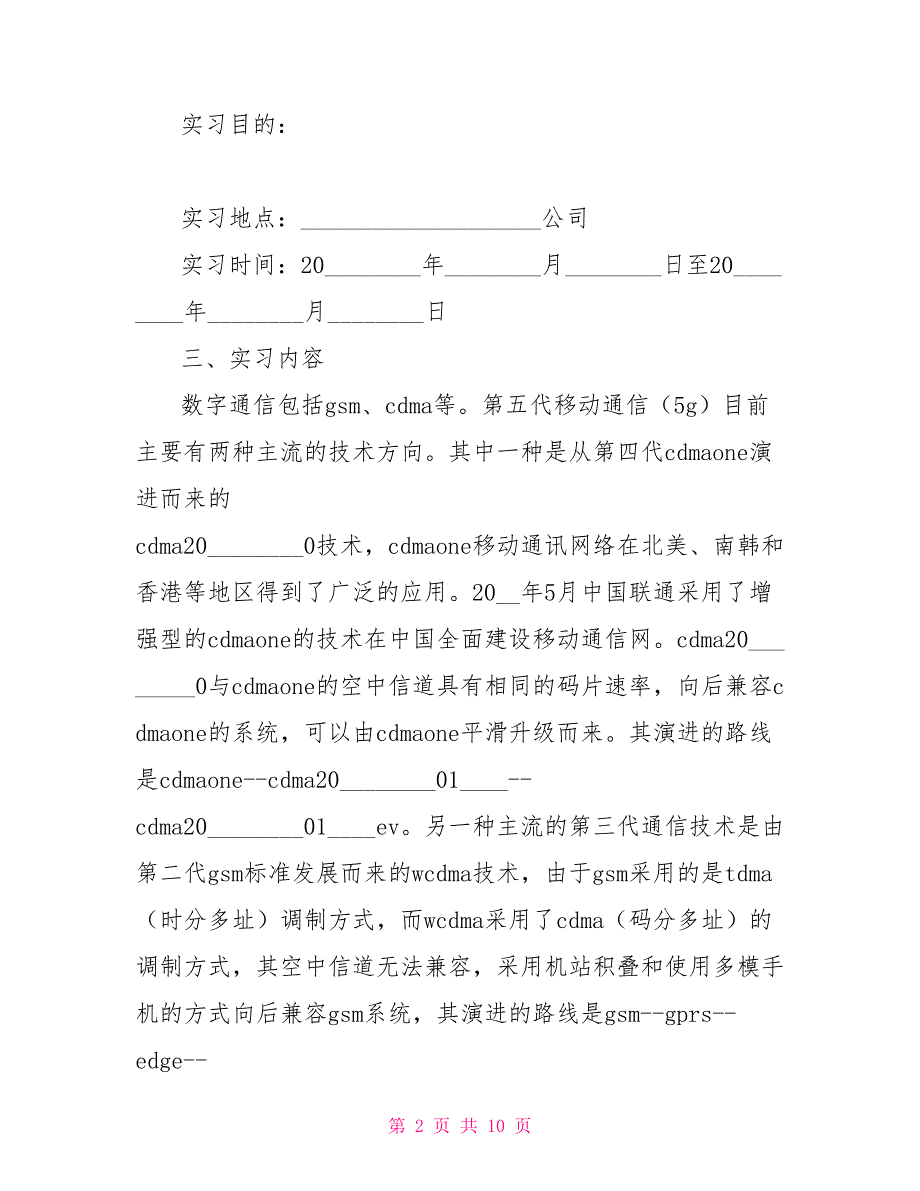 实习目的：
实习地点：____________________公司
实习时间：20________年________月________日至20____
____年________月________日
三、实习内容
数字通信包括gsm、cdma等。第五代移动通信（5g）目前
主要有两种主流的技术方向。其中一种是从第四代cdmaone演
进而来的
cdma20________0技术，cdmaone移动通讯网络在北美、南韩和
香港等地区得到了广泛的应用。20__年5月中国联通采用了增
强型的cdmaone的技术在中国全面建设移动通信网。cdma20___
_____0与cdmaone的空中信道具有相同的码片速率，向后兼容c
dmaone的系统，可以由cdmaone平滑升级而来。其演进的路线
是cdmaone--cdma20________01____--
cdma20________01____ev。另一种主流的第三代通信技术是由
第二代gsm标准发展而来的wcdma技术，由于gsm采用的是tdma
（时分多址）调制方式，而wcdma采用了cdma（码分多址）的
调制方式，其空中信道无法兼容，采用机站积叠和使用多模手
机的方式向后兼容gsm系统，其演进的路线是gsm--gprs--
edge--
第 2 页 共 10 页